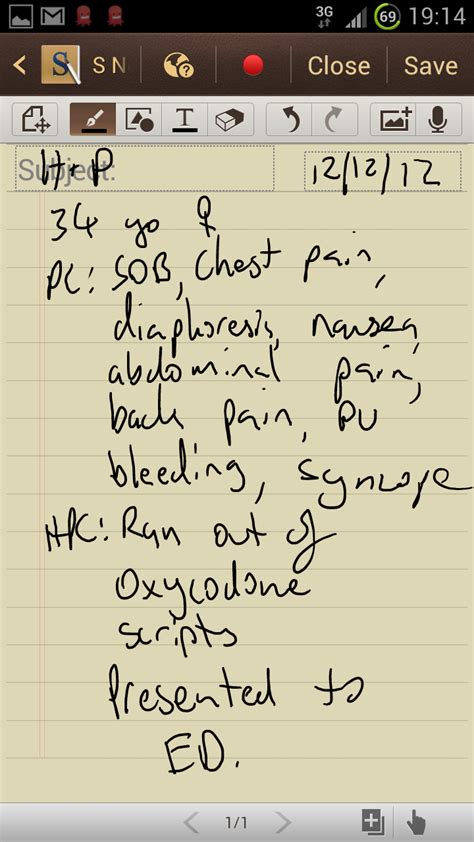 3G 69 19:14
S N Close Save
T
Subject: H+P 12/12/12
34 yo ♀
PC: SOB, Chest pain,
diaphoresis, nausea,
abdominal pain,
back pain, PU
bleeding, syncope
HPC: Ran out of
Oxycodone
scripts
Presented to
ED.
1/1